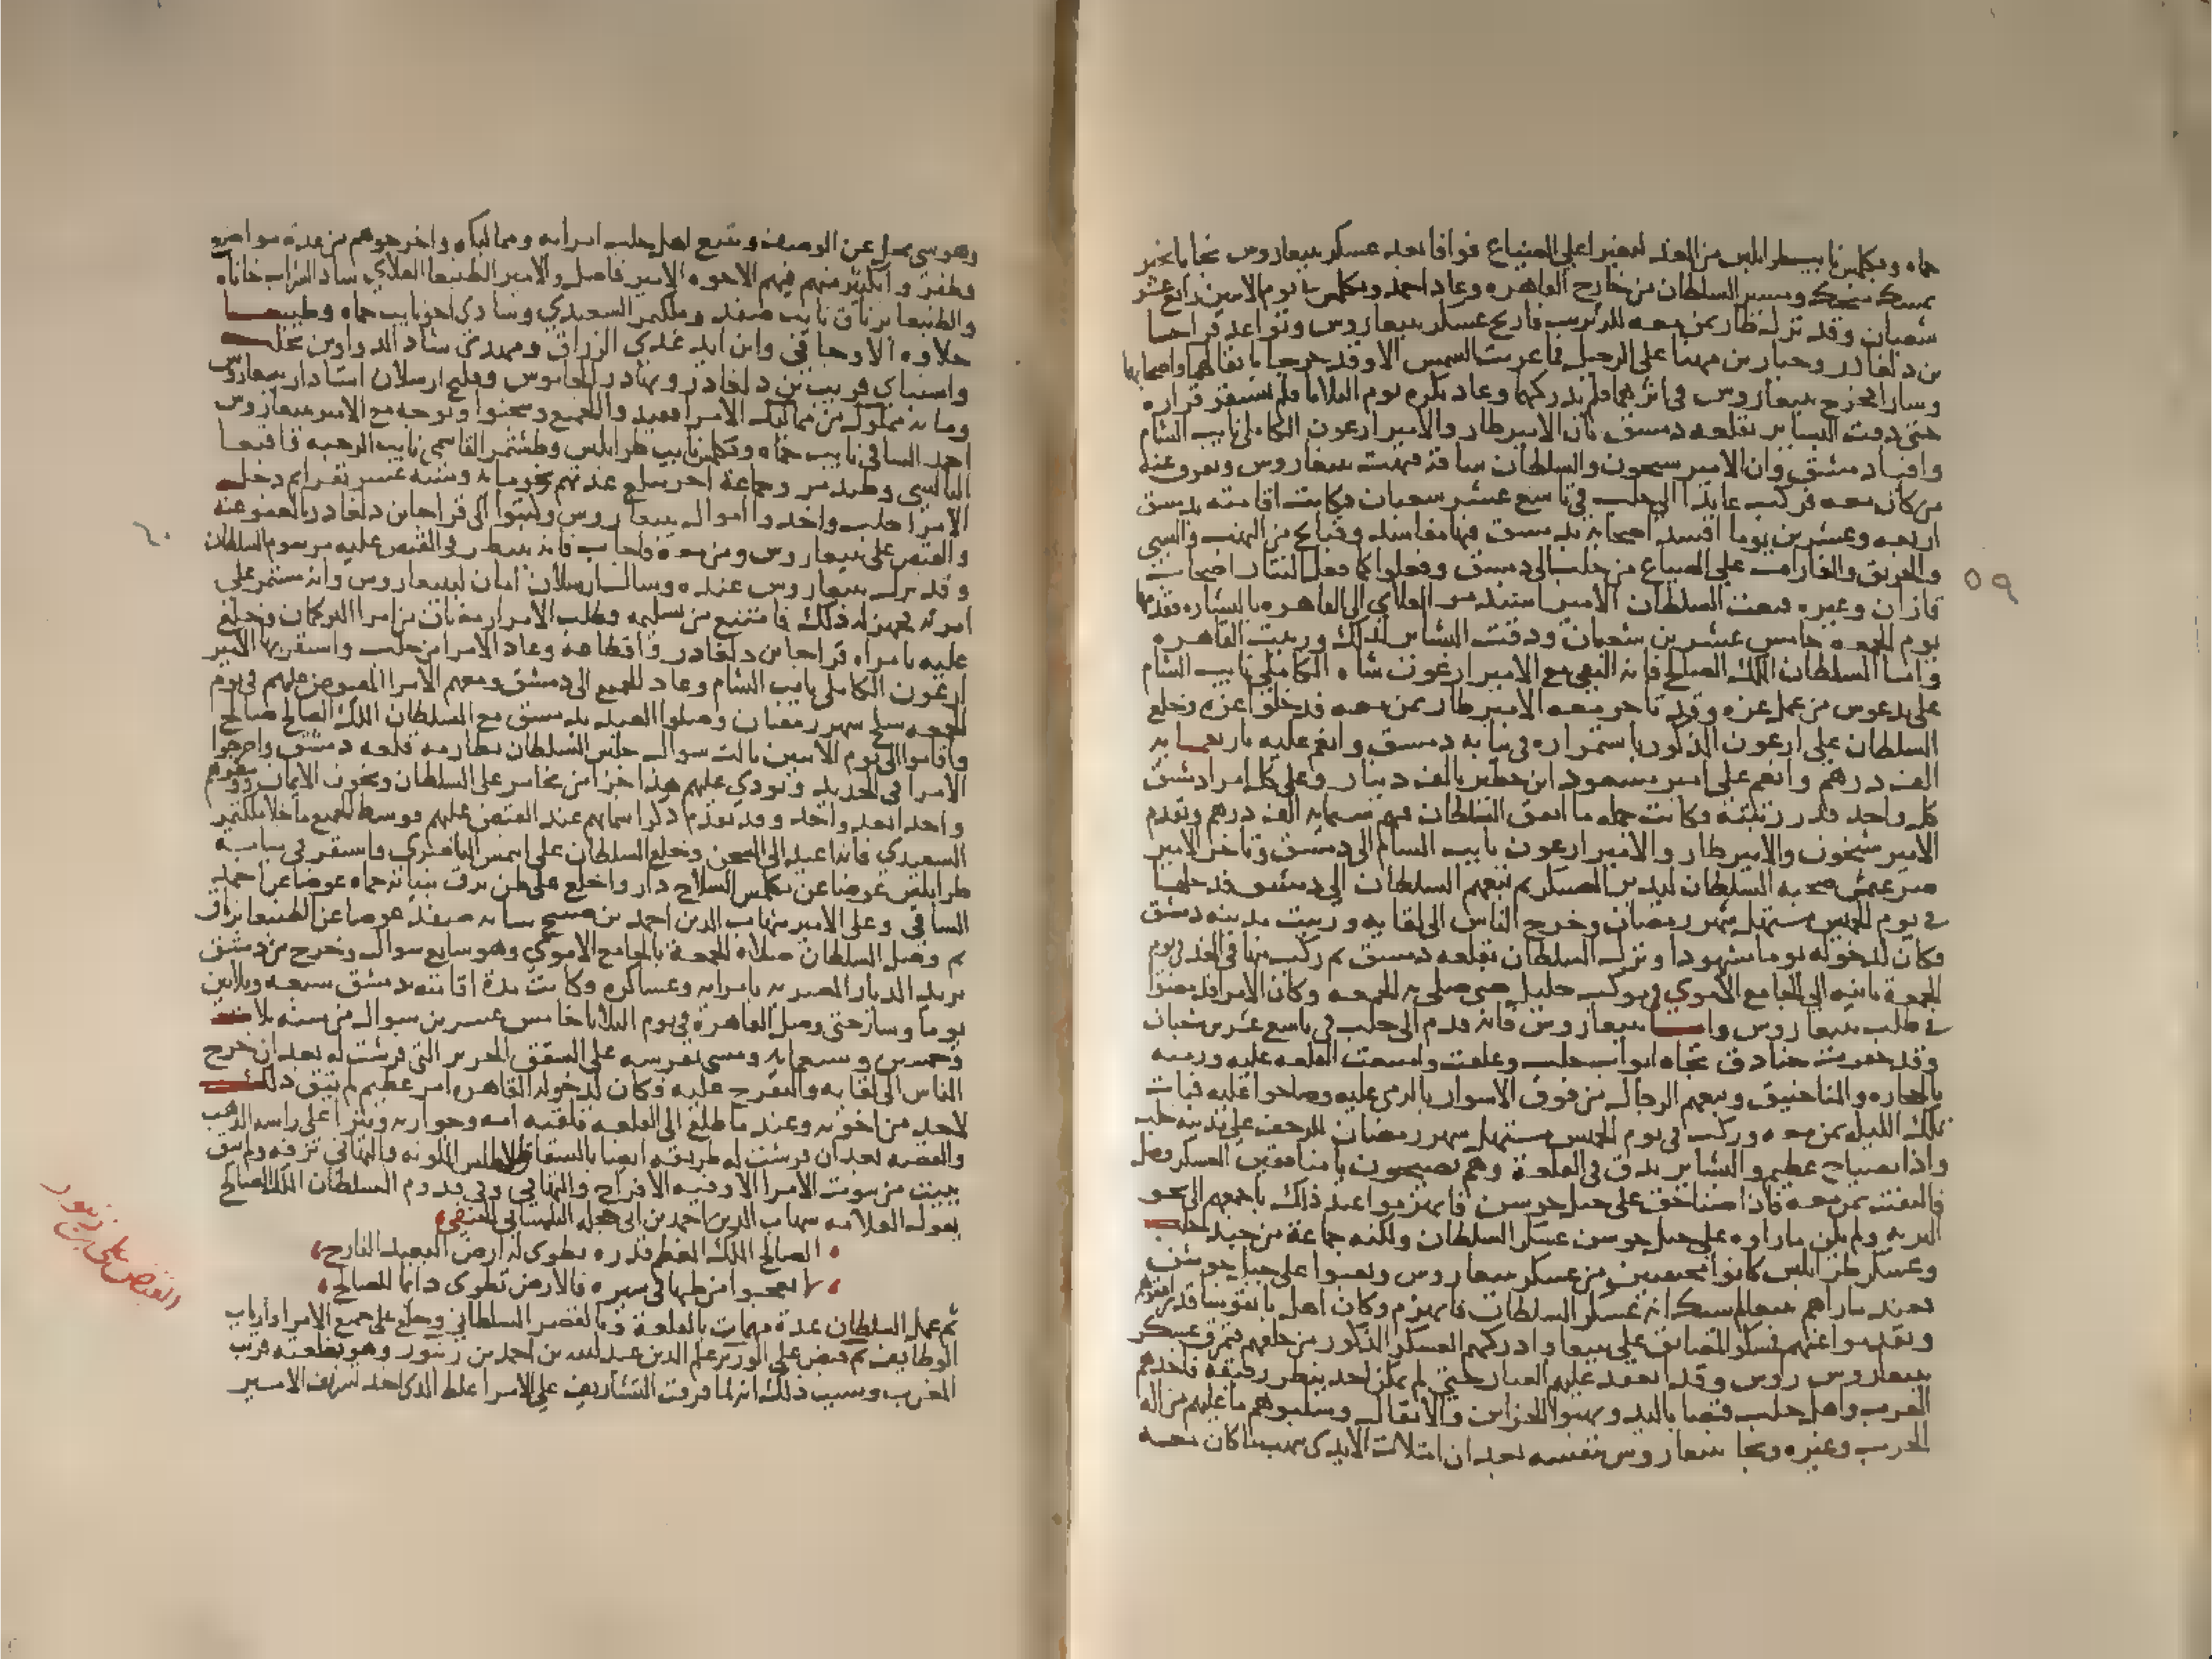 حماه وبكلمش نايب طرابلس من الغد ليغيرا على الضياع فوافا بعد عسكر بيبغاروس نجابا يخبر
بمسك منجك ومسير السلطان من خارج القاهره وعاد احمد وبكلمش في يوم الاثنين رابع عشر
شعبان وقد نزل طاز بمن معه المزيرب فارتج عسكر بيبغاروس وتواعد قراجا
بن دلغادر وحيار بن مهنا على الرحيل فما غربت الشمس الا وقد خرجا باثقالهما واصحابهما
وسارا فخرج بيبغاروس في اثرهما فلم يدركهما وعاد بكره يوم الثلاثا فلم يستقر قراره
حتى دقت البشاير بقلعه دمشق بان الامير طاز والامير ارغون الكاملي نايب الشام
وافيا دمشق وان الامير شيخون والسلطان ساقه فبهت بيبغاروس وتفرق عنه
من كان معه فركب عايدا الى حلب في تاسع عشر شعبان فكانت اقامته بدمشق
اربعه وعشرين يوما افسد اصحابه بدمشق فيها مفاسد وقبايح من النهب والسبي
والحريق والغارات على الضياع من حلب الى دمشق وفعلوا كما فعل التتار اصحاب
قازان وغيره فبعث السلطان الامير اسندمر العلاي الى القاهره بالبشاره فقدمها
يوم الجمعه خامس عشرين شعبان ودقت البشاير لذلك وزينت القاهره
واما السلطان الملك الصالح فانه التقى مع الامير ارغون شاه الكاملي نايب الشام
على بدعرش من عمل غزه وقد تاخر معه الامير طاز بمن معه فدخلوا غزه وخلع
السلطان على ارغون المذكور باستمراره في نيابه دمشق وانعم عليه باربعمايه
الف درهم وانعم على امير مسعود ابن خطير بالف دينار وعلى كل امرا دمشق
كل واحد قدر رتبته وكانت جمله ما انفق السلطان فيهم ستمايه الف درهم وتقدم
الامير شيخون والامير طاز والامير ارغون نايب الشام الى دمشق وتاخر الامير
صرغتمش صحبه السلطان ليدبر العسكر ثم تبعهم السلطان الى دمشق فدخلها
في يوم الخميس مستهل شهر رمضان وخرج الناس الى لقايه وزينت مدينه دمشق
فكان لدخوله يوما مشهودا ونزل السلطان بقلعه دمشق ثم ركب منها في الغد في يوم
الجمعة ثانيه الى الجامع الاموي في موكب جليل حتى صلى به الجمعه وكان الامرا قد مضوا
في طلب بيبغاروس واما بيبغاروس فانه قدم الى حلب في تاسع عشرين شعبان
وقد حفرت خنادق تجاه ابواب حلب وغلقت وامتنعت القلعه عليه ورمته
بالحجاره والمناجنيق وتبعهم الرجال من فوق الاسوار بالرمي عليه وصاحوا عليه فبات
تلك الليله بمن معه وركب في يوم الخميس مستهل شهر رمضان للزحف على مدينه حلب
واذا بصياح عظيم والبشاير تدق في القلعة وهم يصيحون يا منافقين العسكر وصل
فالتفت بمن معه فاذا صناجق على جبل جوشن فانهزموا عند ذلك باجمعهم الى نحو
البريه ولم يكن ما راوه على جبل جوشن عسكر السلطان ولكنه جماعة من جند حلب
وعسكر طرابلس كانوا مختفيين من عسكر بيبغاروس ونصبوا على جبل جوشن
فعند ما راهم بيبغا لم يشك انه عسكر السلطان فانهزم وكان اهل بانقوسا قد
وتقدموا عنهم مسكوا المضايق على بيبغا وادركهم العسكر المذكور من خلفهم فتمزق عسكر
بيبغاروس روس وقد انعقد عليهم الغبار حتى لم يمكن احد ينظر رفيقه فاخذهم
العرب واهل حلب قبضا باليد ونهبوا الخزاين والاثقال وسلبوهم ما عليهم من اله
الحرب وغيره ونجا بيبغاروس بنفسه بعد ان امتلات الايدي بنهب ما كان معه
٥٩
وهو شي يجل عن الوصف وتتبع اهل حلب امرايه ومماليكه واخرجوهم من عدة مواضع
وظفر واكثير منهم فيهم الاخوه الامير فاضل والامير الطنبغا العلاي شاد الشراب خاناه
والطنبغا برناق نايب صفد وملكتمر السعيدي وشادي اخو نايب حماه وطيبغا
حلاوه الاوجاقي وابن ايدغدي الزراق ومهدي شاد الدواوين بحلب
واسنباي قريب بن دلغادر وبهادر الجاموس وقليج ارسلان استادار بيبغاروس
ومايه مملوك من مماليك الامرا فقيد والجميع وسجنوا وتوجه مع الامير بيبغاروس
احمد الساقي نايب حماه وبكلمش نايب طرابلس وطشتمر القاسمي نايب الرحبه واقبغا
البالسي وطيدمر وجماعة اخر تبلغ عدتهم نحو مايه وسته عشر نفرا ثم دخل
الامرا حلب واخدوا اموال بيبغاروس وكتبوا الى قراجا بن دلغادر بالعفو عنه
والقبض على بيبغاروس ومن معه فاجاب فانه ينتظر في القبض عليه مرسوم السلطان
وقد نزل بيبغاروس عنده وسال ارسال امان لبيبغاروس وانه مستمر على
امرته فجهز له ذلك فامتنع من تسليمه وطلب الامرا رمضان من امرا التركمان وخلع
عليه بامراه قراجا بن دلغادر واقطاعه وعاد الامرا من حلب واستقر بها الامير
ارغون الكاملي نايب الشام وعاد الجميع الى دمشق ومعهم الامرا المقبوض عليهم في يوم
الجمعه سلخ شهر رمضان وصلوا العيد بدمشق مع السلطان الملك الصالح صالح
واقاموا الى يوم الاثنين ثالث شوال جلس السلطان بطارمه قلعه دمشق واخرجوا
الامرا في الحديد ونودي عليهم هذا جزا من يخامر على السلطان ويخون الايمان ووسطوهم
واحدا بعد واحد وقد تقدم ذكر اسمايهم عند القبض عليهم فوسط الجميع ما خلا ملكتمر
السعيدي فانه اعيد الى السجن وخلع السلطان على ايتمش الناصري واستقر في نيابة
طرابلس عوضا عن بكلمش السلاح دار واخلع على طنيرق بنيابة حماه عوضا عن احمد
الساقي وعلى الامير شهاب الدين احمد بن صبح بنيابه صفد عوضا عن الطنبغا برناق
ثم وصل السلطان صلاة الجمعة بالجامع الاموي وهو سابع شوال وخرج من دمشق
يريد الديار المصريه بامرايه وعساكره وكانت مدة اقامته بدمشق سبعه وثلاثين
يوما وسار حتى وصل القاهرة في يوم الثلاثا خامس عشرين شوال من سنه ثلاث
وخمسين وسبعمايه ومشى بفرسه على الشقق الحرير التي فرشت له بعد ان خرج
الناس الى لقايه والتفرج عليه فكان لدخوله القاهره امر عظيم لم يتفق ذلك
لاحد من اخوته وعند ما طلع الى القلعه تلقته امه وجواره ونثروا على راسه الذهب
والفضه بعد ان فرشت له طريقه ايضا بالشقاق الاطلس الملونه والتهاني تزفه ولم يبق
بيت من بيوت الامرا الا وفيه الافراح والتهاني وفي قدوم السلطان الملك الصالح
يقول العلامه شهاب الدين احمد بن ابي حجله التلمساني الحنفي
الصالح الملك المعظم قدره يطوى له ارض البعيد النازح
لا تعجبوا من طيها في سيره فالارض تطوى دائما للصالح
ثم عمل السلطان عدة مهمات بالقلعة وبالقصر السلطاني وخلع على جميع الامرا وارباب
الوظايف ثم قبض على الوزير علم الدين عبد الله بن احمد بن زنبور وهو بخلعته قريب
المغرب وسبب ذلك انه لما فرقت التشاريف على الامرا غلط الذي اخذ تشريف الامير
٦٠
القبض على بن زنبور